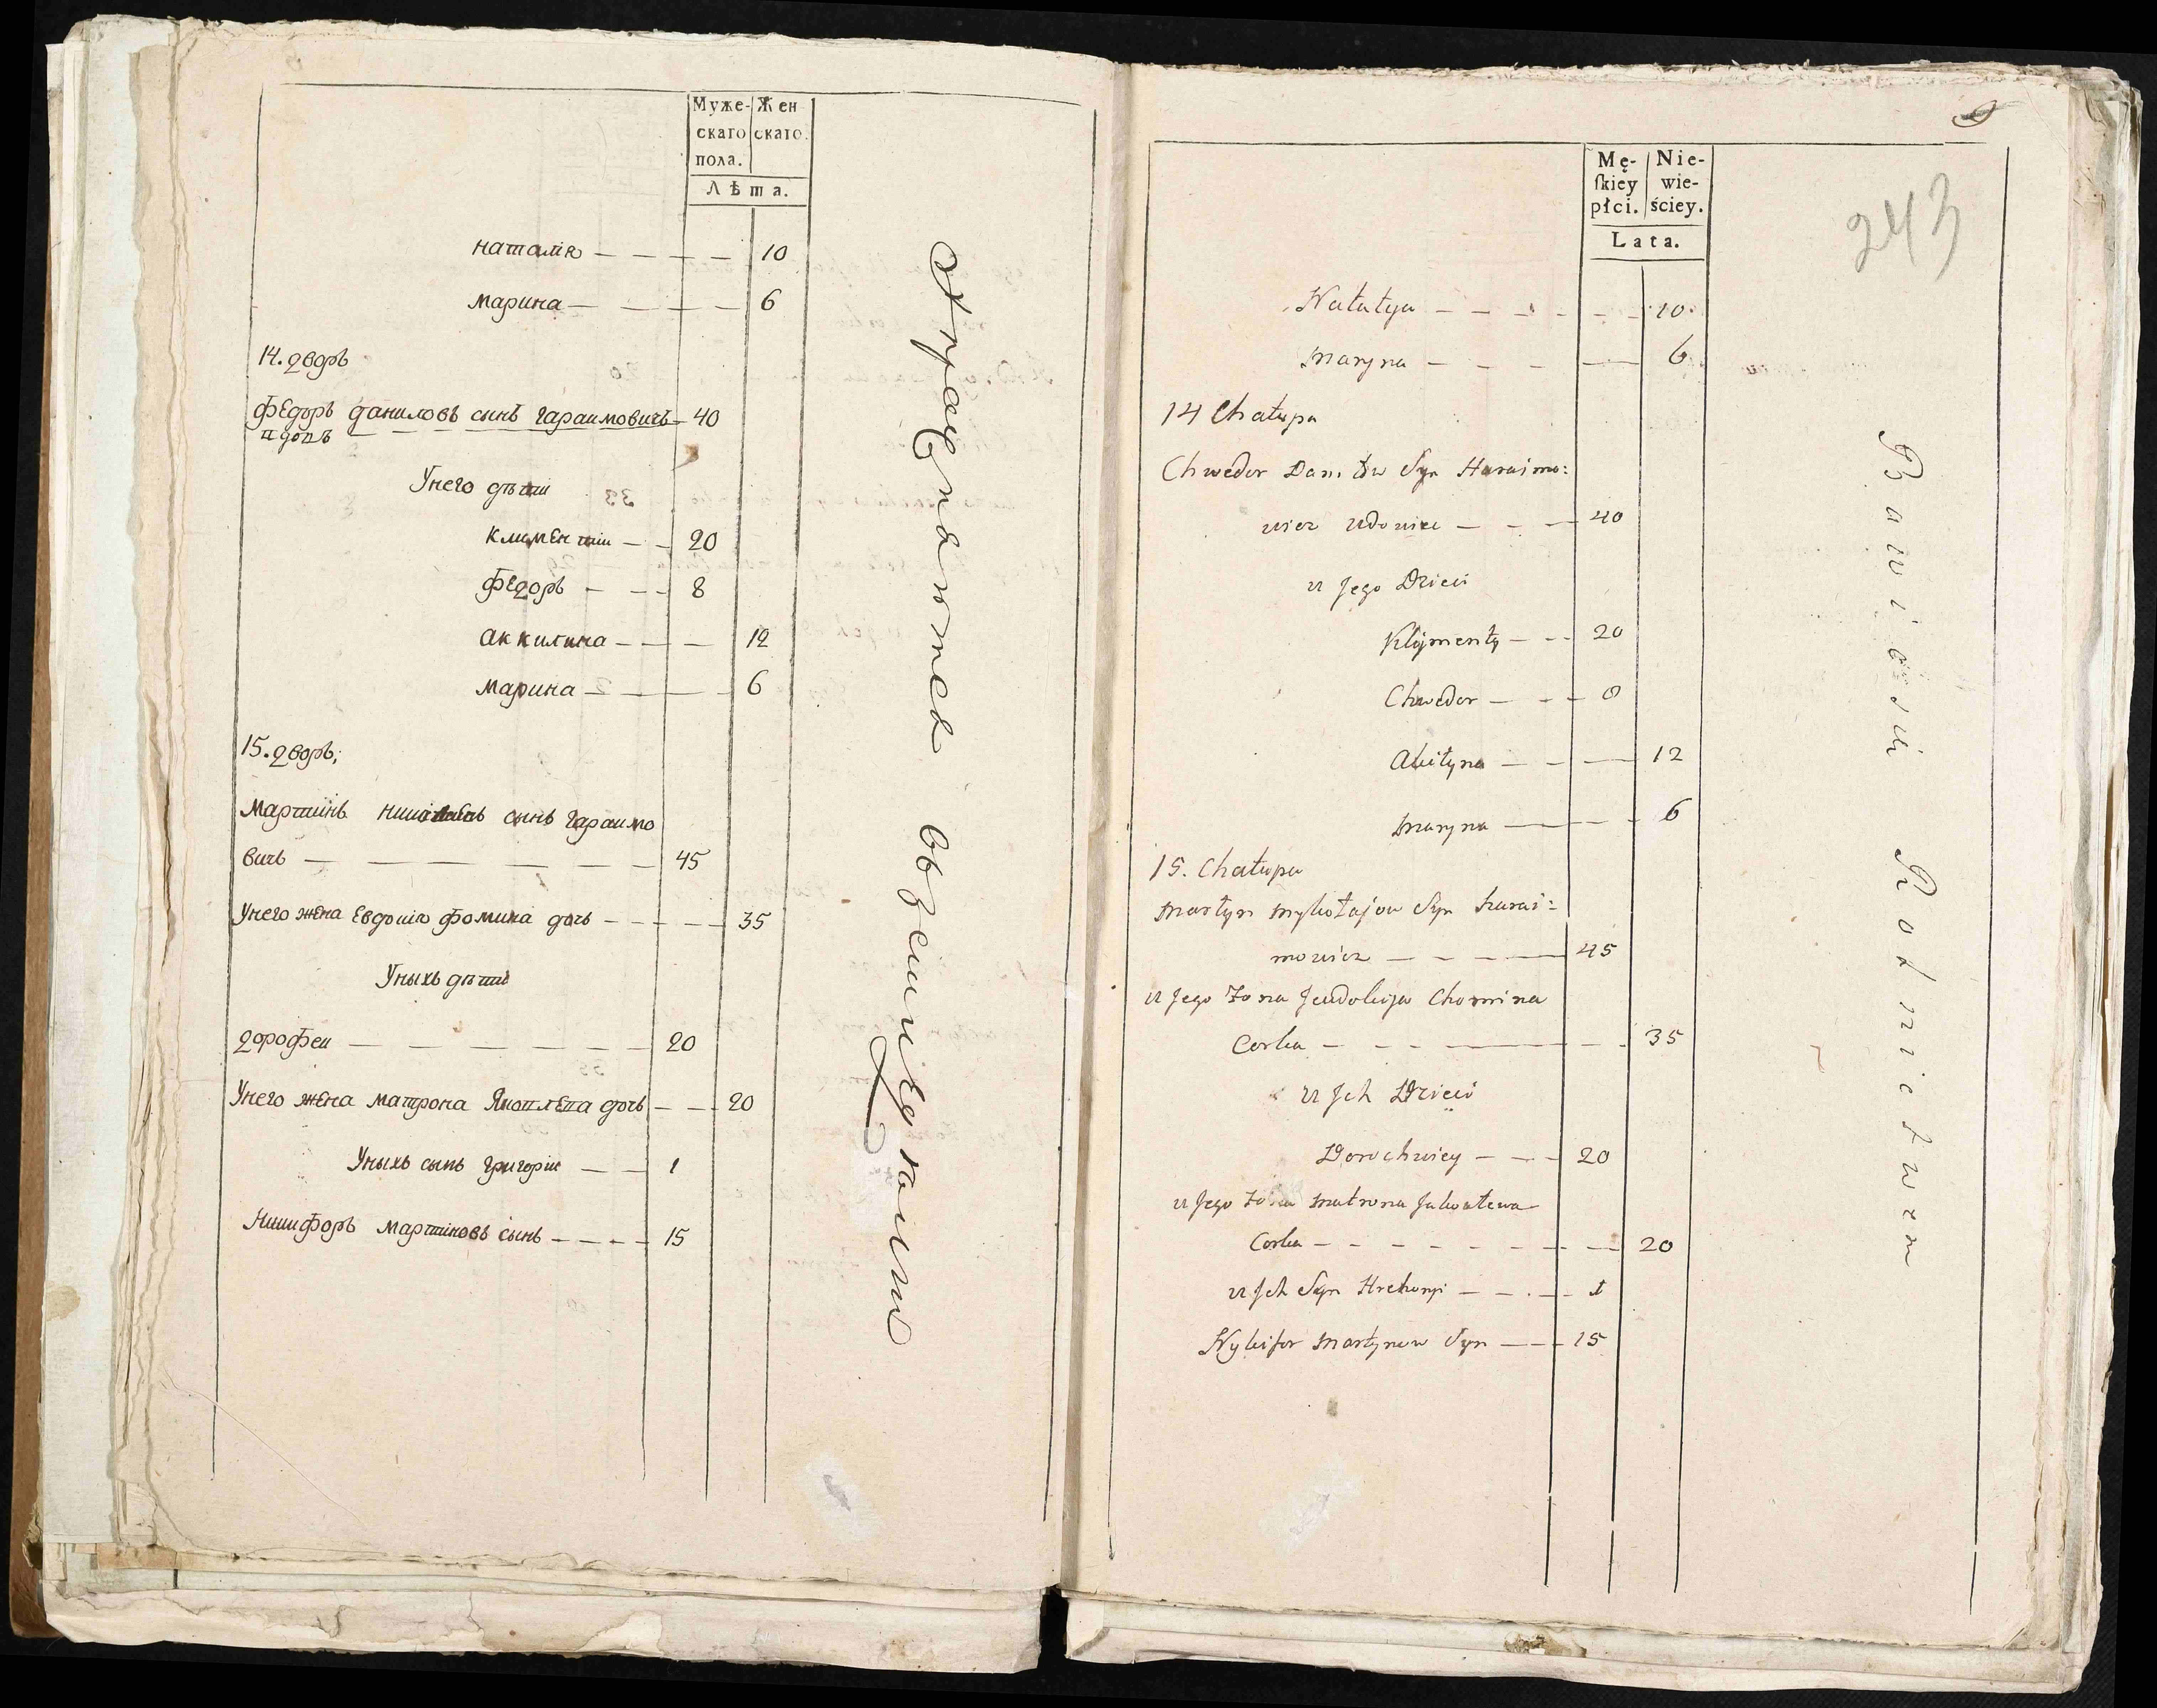 Муже-
скаго
пола.
Жен
скаго.
Лѣта.
наталія — — — — 10
Марина — — — — 6
14. дворъ
Федоръ даниловъ синъ гараимовичъ — 40
вдовъ
Унего дѣти
Климентии — — 20
Федоръ — — — 8
Аккилина — — — 12
Марина — — — — 6
15. дворъ;
Мартинъ сынъ гараимо
вичъ — — — — — — 45
Унего жена Евдокіѧ Фомина дочь — — — — 35
Уныхъ дѣти
дорофеи — — — — — — 20
Унего жена матрона Яковлева дочь — — 20
Уныхъ сынъ григории — — 1
Никифоръ мартиновъ сынъ — — — — 15
Упражняются въ земледелии
9
243
Mę-
ſkiey
płci.
Nie-
wie-
ściey.
Lata.
Natalya — — — — — — 10
Maryna — — — — 6
14 Chałupa
Chwedor Daniłow Syn Haraimo:
wicz wdowiec — — — 40
u Jego Dzieci
Klymenty — — 20
Chwedor — — — 8
Akiłyna — — — 12
Maryna — — — 6
15. Chałupa
Martyn Mykołajow Syn harai:
mowicz — — — — 45
u Jego Żona Jeudokija Chomina
Corka — — — — — — 35
u Jch Dzieci
Dorochwiey — — — 20
u Jego Żona Matrona Jakowlewa
Corka — — — — — — — — 20
u Jch Syn Hrehory — — — — 1
Nykifor Martynow Syn — — — 15
Bawią się Rolnictwem